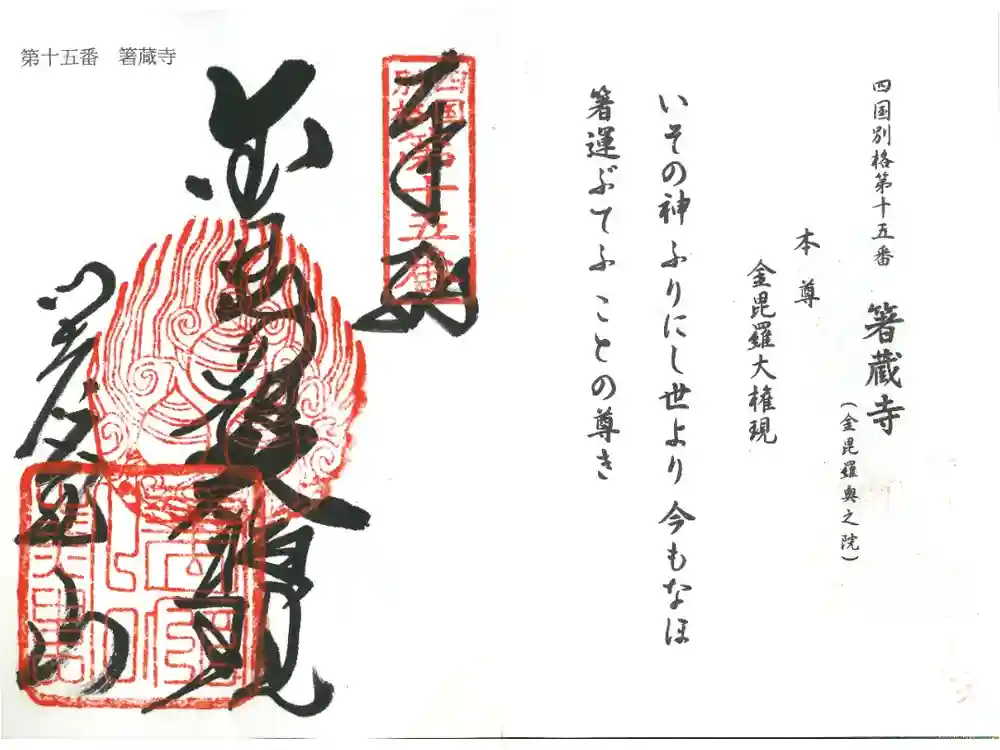 四国別格第十五番 箸蔵寺
(金毘羅奥之院)
本尊
金毘羅大権現
いその神 ふりにし世より 今もなほ
箸運ぶてふ ことの尊き
第十五番 箸蔵寺
奉納
四国
別格
第十五番
金毘羅大権現
箸蔵山